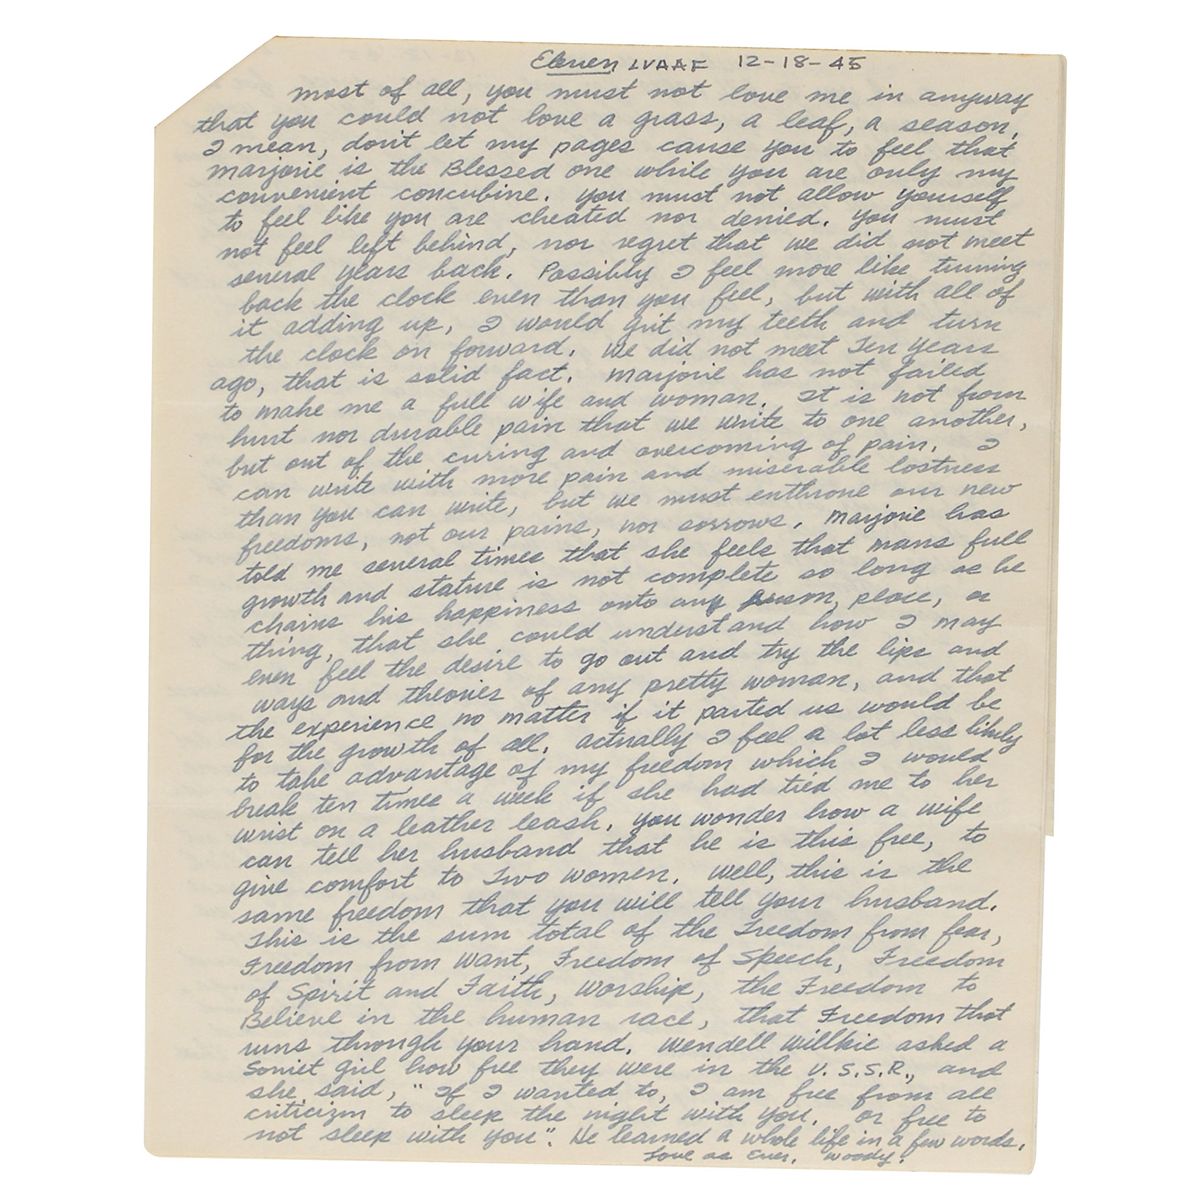 Eleven LVAAF 12-18-45
most of all, you must not love me in anyway
that you could not love a grass, a leaf, a season,
I mean, don't let my pages cause you to feel that
marjorie is the Blessed one while you are only my
convenient concubine. you must not allow yourself
to feel like you are cheated nor denied. you must
not feel left behind, nor regret that we did not meet
several years back. Possibly I feel more like turning
back the clock even than you feel, but with all of
it adding up, I would grit my teeth and turn
the clock on forward. We did not meet Ten years
ago, that is solid fact. marjorie has not failed
to make me a full wife and woman. It is not from
hurt nor durable pain that we write to one another,
but out of the curing and overcoming of pain. I
can write with more pain and miserable lostness
than you can write, but we must enthrone our new
freedoms, not our pains, nor sorrows. marjorie has
told me several times that she feels that mans full
growth and stature is not complete so long as he
chains his happiness onto any person, place, or
thing, that she could understand how I may
even feel the desire to go out and try the lips and
ways and theories of any pretty woman, and that
the experience no matter if it parted us would be
for the growth of all. actually I feel a lot less likely
to take advantage of my freedom which I would
break ten times a week if she had tied me to her
wrist on a leather leash. you wonder how a wife
can tell her husband that he is this free, to
give comfort to Two women. well, this is the
same freedom that you will tell your husband.
This is the sum total of the Freedom from fear,
Freedom from want, Freedom of Speech, Freedom
of Spirit and Faith, worship, the Freedom to
Believe in the human race, that Freedom that
runs through your hand. wendell willkie asked a
Soviet girl how free they were in the U.S.S.R., and
she said, "If I wanted to, I am free from all
criticizm to sleep the night with you, or free to
not sleep with you". He learned a whole life in a few words.
Love as Ever, Woody.